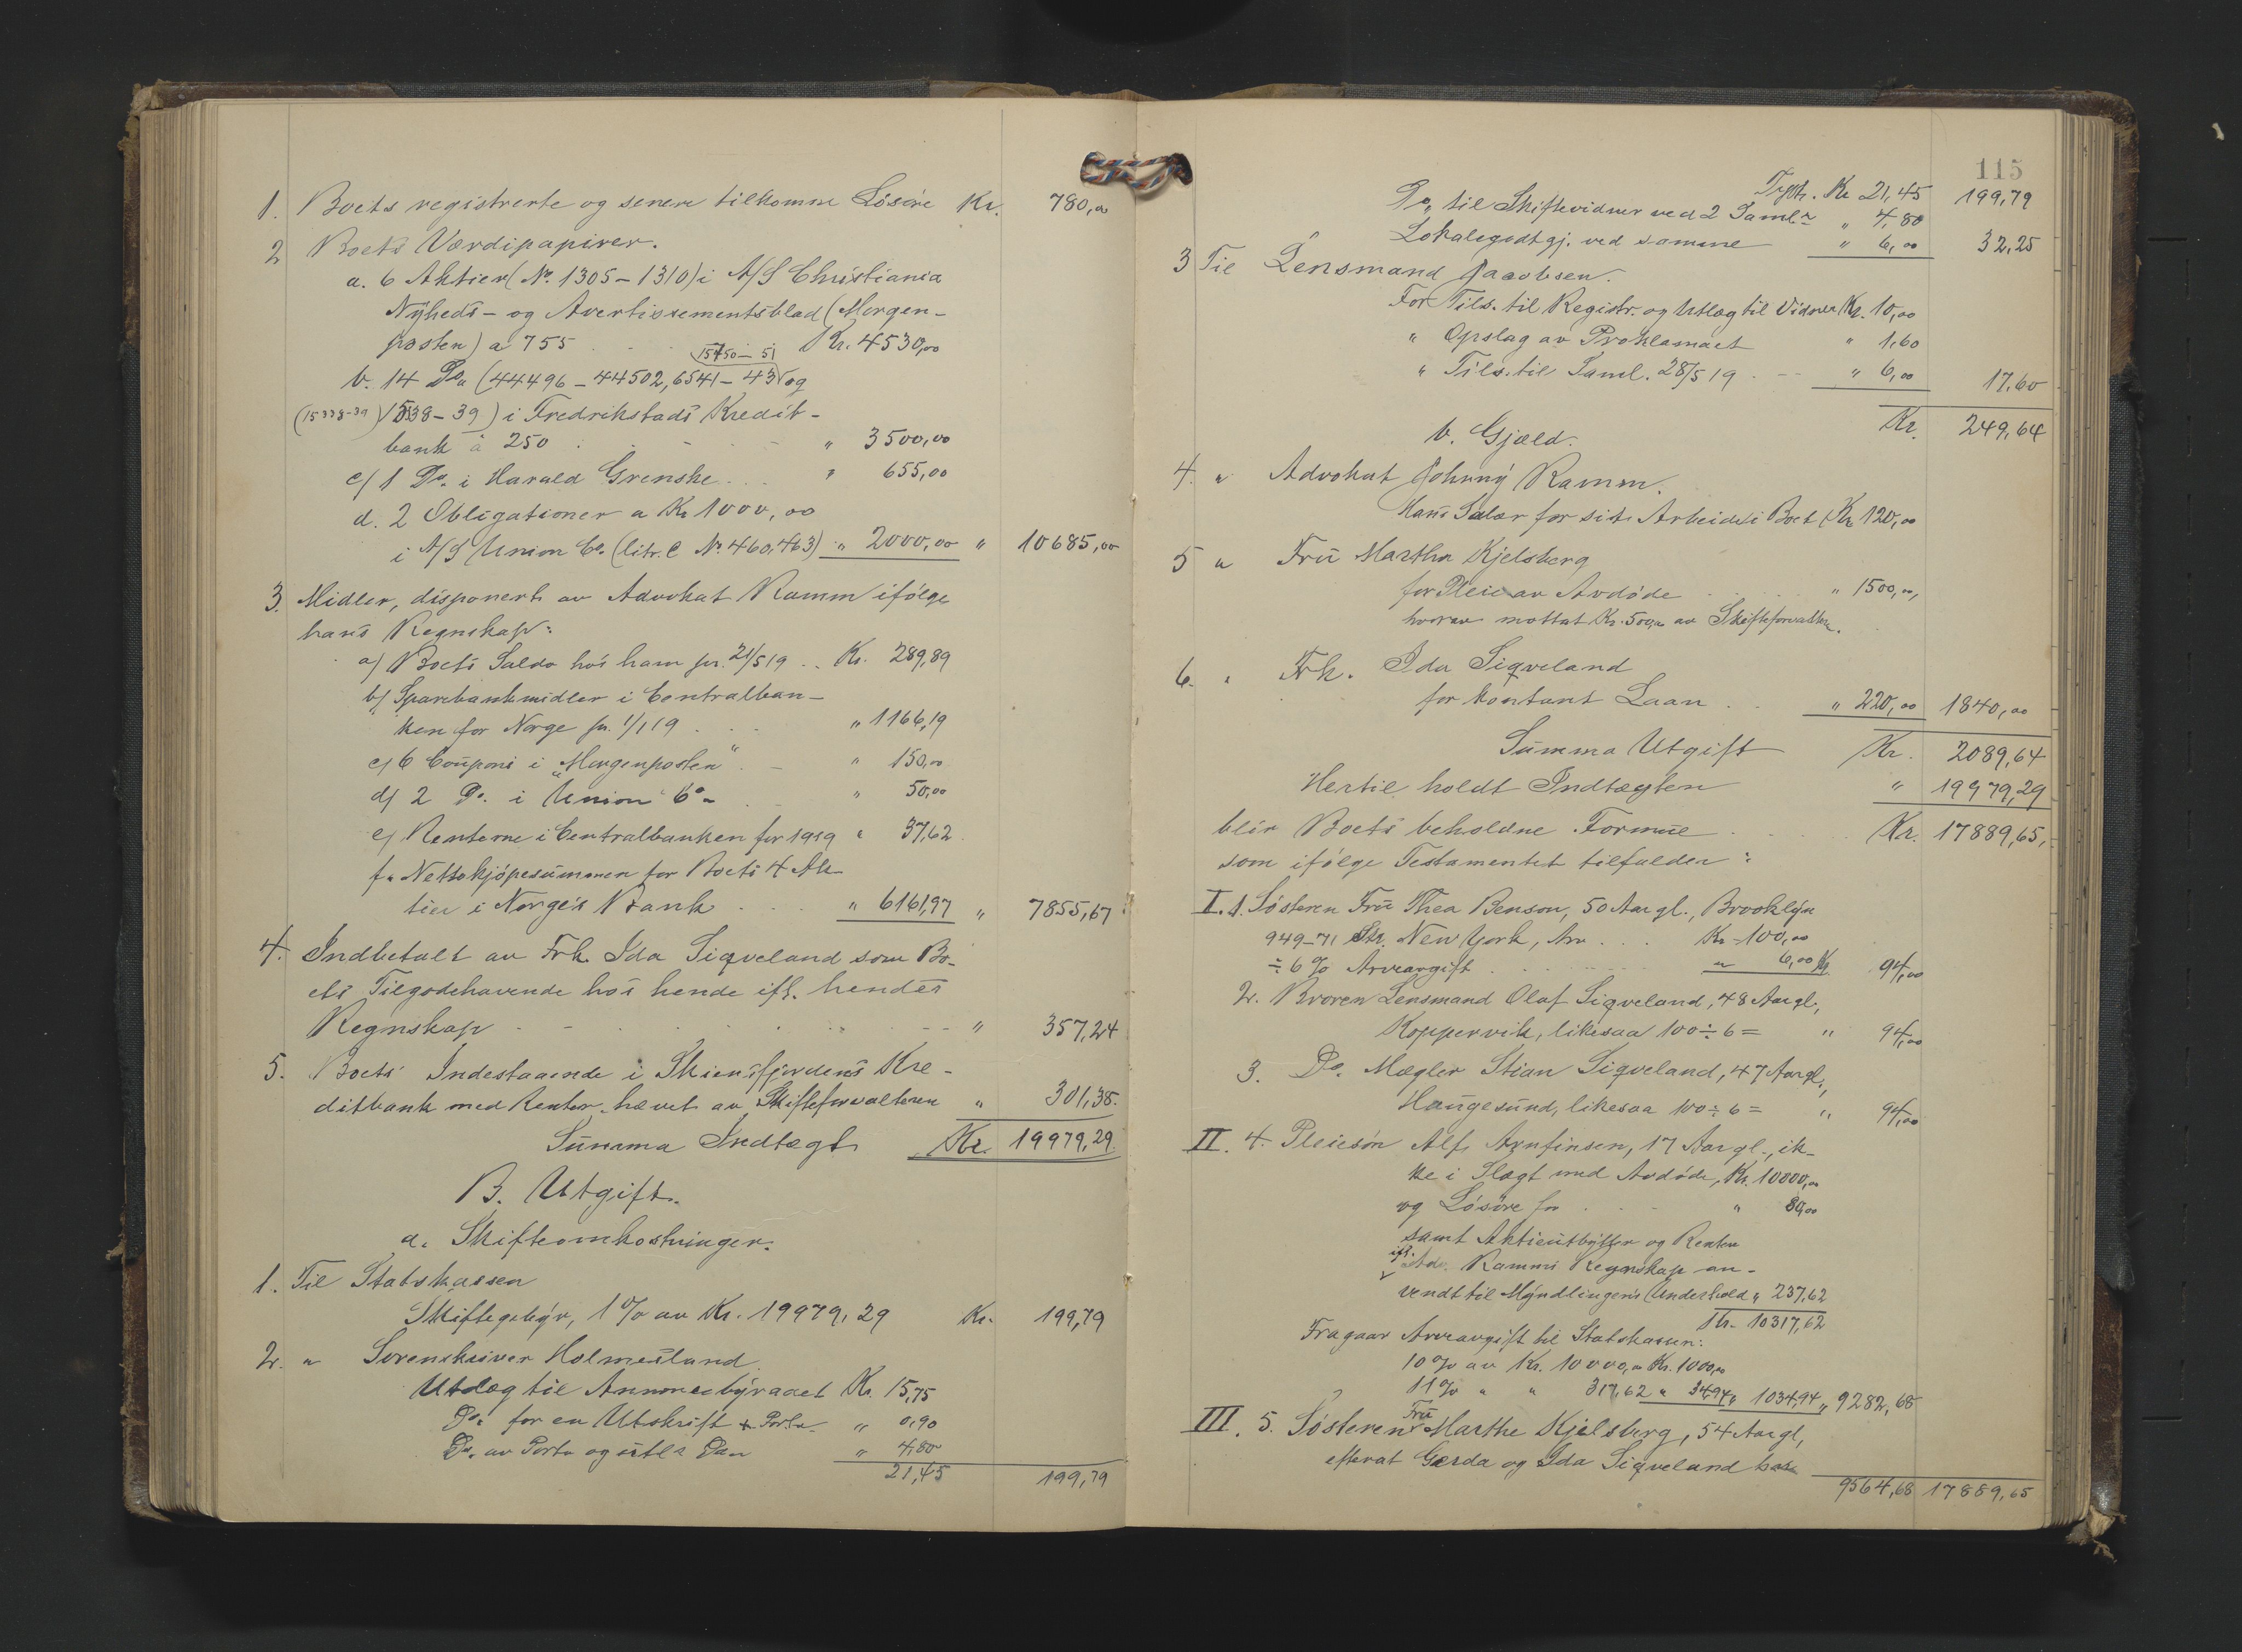 1. Boets registrerte og senere tilkomne Løsøre Kr. 780,00
2 Boets Værdipapirer.
a. 6 Aktier (No. 1305-1310) i A/S Christiania
Nyheds- og Avertissementsblad (Morgen-
posten) a 755 . . . Kr. 4530,00
15450-51
b. 14 Do. (44496-44502, 6541-43 og
(15338-39) 15338-39) i Fredrikstads Kredit-
bank à 250 . . . " 3500,00
c/ 1 Do. i Harald Grenske . . . " 655,00
d. 2 Obligationer a Kr 1000,00
i A/S Union Co. (litr. C No. 460,463) " 2000,00 " 10685,00
3. Midler, disponert av Advokat Ramm ifølge
hans Regnskap:
a/ Boets Saldo hos ham pr. 21/5 19 . . Kr. 289,89
b/ Sparebankmidler i Centralban-
ken for Norge pr. 1/1 19 . . . " 1166,19
c/ 6 Coupons i "Morgenposten" . - " 150,00
d/ 2 Do. i Union Co. . " 50,00
e/ Renterne i Centralbanken for 1919 " 37,62
f. Nettokjøpesummen for Boets 4 Ak-
tier i Norges Bank . . . " 6161,97 " 7855,67
4. Indbetalt av Frk. Ida Siqveland som Bo-
ets Tilgodehavende hos hende ifl. hendes
Regnskap . . . " 357,24
5. Boets Indestaaende i Skiensfjordens Kre-
ditbank med Renter, hævet av Skifteforvalteren " 301,38.
Summa Indtægt Kr. 19979,29.
B. Utgift.
a. Skifteomkostninger.
1. Til Statskassen
Skiftegebyr, 1% av Kr. 19979,29 Kr. 199,79
2. " Sorenskriver Holmesland.
Utlæg til Annoncebyraaet Kr. 15,75
Do. for en Utskrift + Porto " 0,90
Do. av Porto og utla " 4,80
21,45 199,79
115
Trpt. Kr 21,45 199,79
Do. til Skiftevidner ved 2 Saml. " 4,80
Lokalegodtgj. ved samme " 6,00 32,25
3 Til Lensmand Jacobsen.
For Tils. til Registr. og Utlæg til Vidner Kr. 10,00
" Opslag av Proklamaet " 1,60
" Tils. til Saml. 28/5 19 . - - " 6,00 17,60
Kr. 249,64
b. Gjæld.
4. " Advokat Johnny Ramm.
Hans Salær for sit Arbeide i Boet Kr 120,00
5 " Fru Marthe Kjelsberg
for Pleie av Avdøde . . " 1500,00,
hvorav mottat Kr. 500,00 av Skifteforvalteren.
6. " Frk. Ida Siqveland
for kontant Laan . . " 220,00 1840,00
Summa Utgift Kr. 2089,64
Hertil holdt Indtægten " 19979,29
blir Boets beholdne Formue . . . Kr. 17889,65,
som ifølge Testamentet tilfalder:
I. 1. Søsteren Fru Thea Benson, 50 Aar gl., Brooklyn
949-71 Str. New York, Arv . . . Kr. 100,00
÷ 6% Arveavgift . . . " 6,00 Kr. 94,00
2. Broren Lensmand Olaf Siqveland, 48 Aar gl.,
Koppervik, likesaa 100 ÷ 6 = " 94,00
3. Do. Mægler Stian Siqveland, 47 Aar gl.,
Haugesund, likesaa 100 ÷ 6 = " 94,00
II. 4. Pleiesøn Alf Arnfinsen, 17 Aar gl., ik-
ke i Slægt med Avdøde, Kr. 10000,00
og Løsøre for . . - " 80,00
samt Aktieutbytter og Renter
ifl. Adv. Ramms Regnskap an-
vendt til Myndlingens Underhold " 237,62
Kr. 10317,62
Fragaar Arveavgift til Statskassen:
10% av Kr. 10000,00 Kr. 1000,00
11% " " 317,62 " 34,94 " 1034,94 " 9282,68
III. 5. Søsteren Fru Marthe Kjelsberg, 54 Aar gl,
efterat Gerda og Ida Siqveland har
9564,68 17889,65